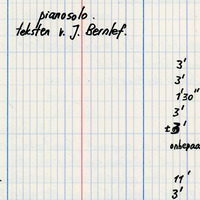 pianosolo.
teksten v. J. Bernlef.
3'
3'
1'30"
3'
±3'
onbepaa
11'
3'